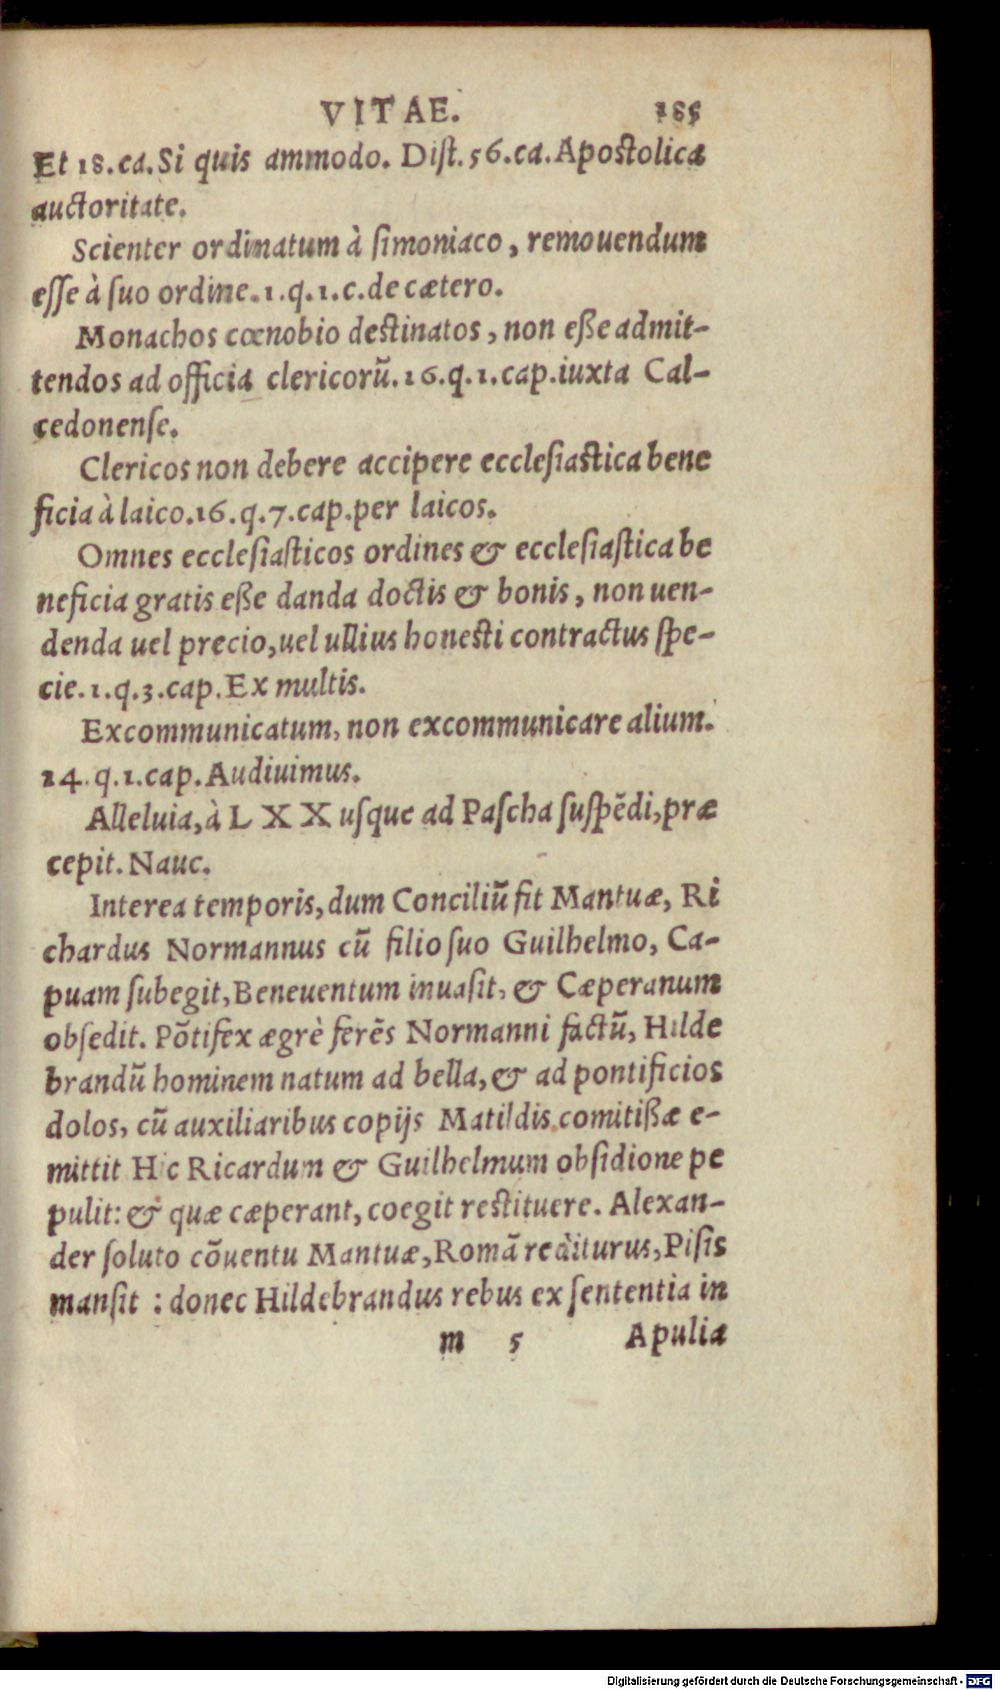 VITAE. 185
Et 18. ca. Si quis ammodo. Dist. 56. ca. Apostolica
auctoritate.
Scienter ordinatum à simoniaco, remouendum
esse à suo ordine. 1. q. 1. c. de cætero.
Monachos cœnobio destinatos, non eße admit-
tendos ad officia clericorū. 16. q. 1. cap. iuxta Cal-
cedonense.
Clericos non debere accipere ecclesiastica bene
ficia à laico. 16. q. 7. cap. per laicos.
Omnes ecclesiasticos ordines & ecclesiastica be
neficia gratis eße danda doctis & bonis, non uen-
denda uel precio, uel ullius honesti contractus spe-
cie. 1. q. 3. cap. Ex multis.
Excommunicatum, non excommunicare alium.
24. q. 1. cap. Audiuimus.
Alleluia, à LXX usque ad Pascha suspēdi, præ
cepit. Nauc.
Interea temporis, dum Conciliū fit Mantuæ, Ri
chardus Normannus cū filio suo Guilhelmo, Ca-
puam subegit, Beneuentum inuasit, & Cæperanum
obsedit. Pōtifex ægrè ferēs Normanni factū, Hilde
brandū hominem natum ad bella, & ad pontificios
dolos, cū auxiliaribus copijs Matildis comitißæ e-
mittit Hic Ricardum & Guilhelmum obsidione pe
pulit: & quæ cæperant, coegit restituere. Alexan-
der soluto cōuentu Mantuæ, Romā rediturus, Pisis
mansit : donec Hildebrandus rebus ex sententia in
m 5 Apulia
Digitalisierung gefördert durch die Deutsche Forschungsgemeinschaft - DFG